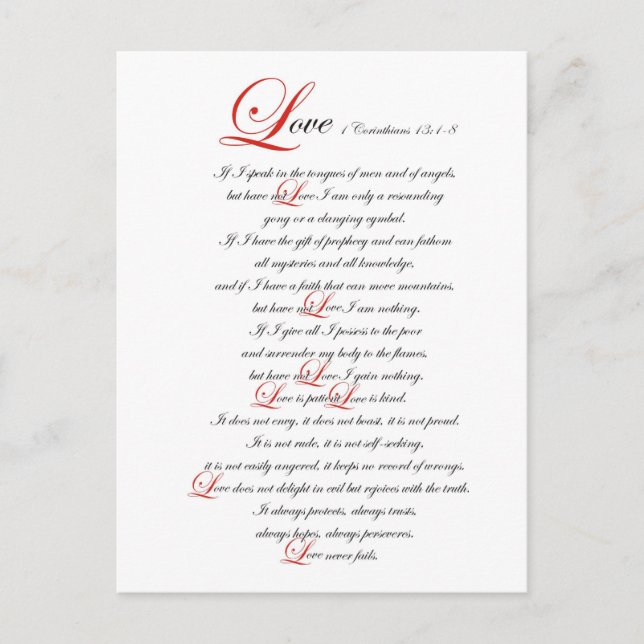 Love 1 Corinthians 13:1-8
If I speak in the tongues of men and of angels,
but have not Love I am only a resounding
gong or a clanging cymbal.
If I have the gift of prophecy and can fathom
all mysteries and all knowledge,
and if I have a faith that can move mountains,
but have not Love I am nothing.
If I give all I possess to the poor
and surrender my body to the flames,
but have not Love I gain nothing.
Love is patient Love is kind.
It does not envy, it does not boast, it is not proud.
It is not rude, it is not self-seeking,
it is not easily angered, it keeps no record of wrongs.
Love does not delight in evil but rejoices with the truth.
It always protects, always trusts,
always hopes, always perseveres.
Love never fails.